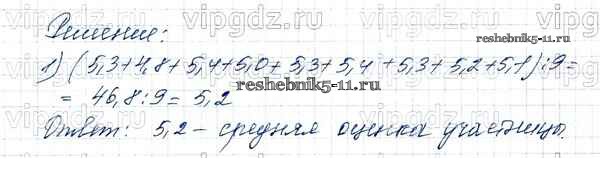 vipgdz.ru vipgdz.ru vipgdz.ru
Решение:
www.reshebnik5-11.ru
1) (5,3+4,8+5,4+5,0+5,3+5,4+5,3+5,2+5,1):9=
reshebnik5-11.ru
= 46,8:9= 5,2
Ответ: 5,2 - средняя оценка участницы.
vipgdz.ru vipgdz.ru vipgdz.ru